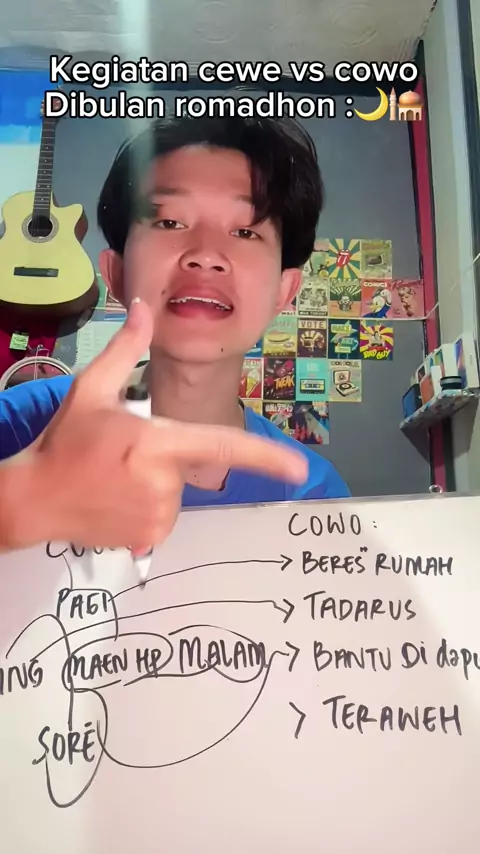 Kegiatan cewe vs cowo
Dibulan romadhon :🌙🕌
COWO :
BERES" RUMAH
PAGI
TADARUS
MAEN HP MALAM
BANTU Di
SORÉ
TERAWEH
VOTE